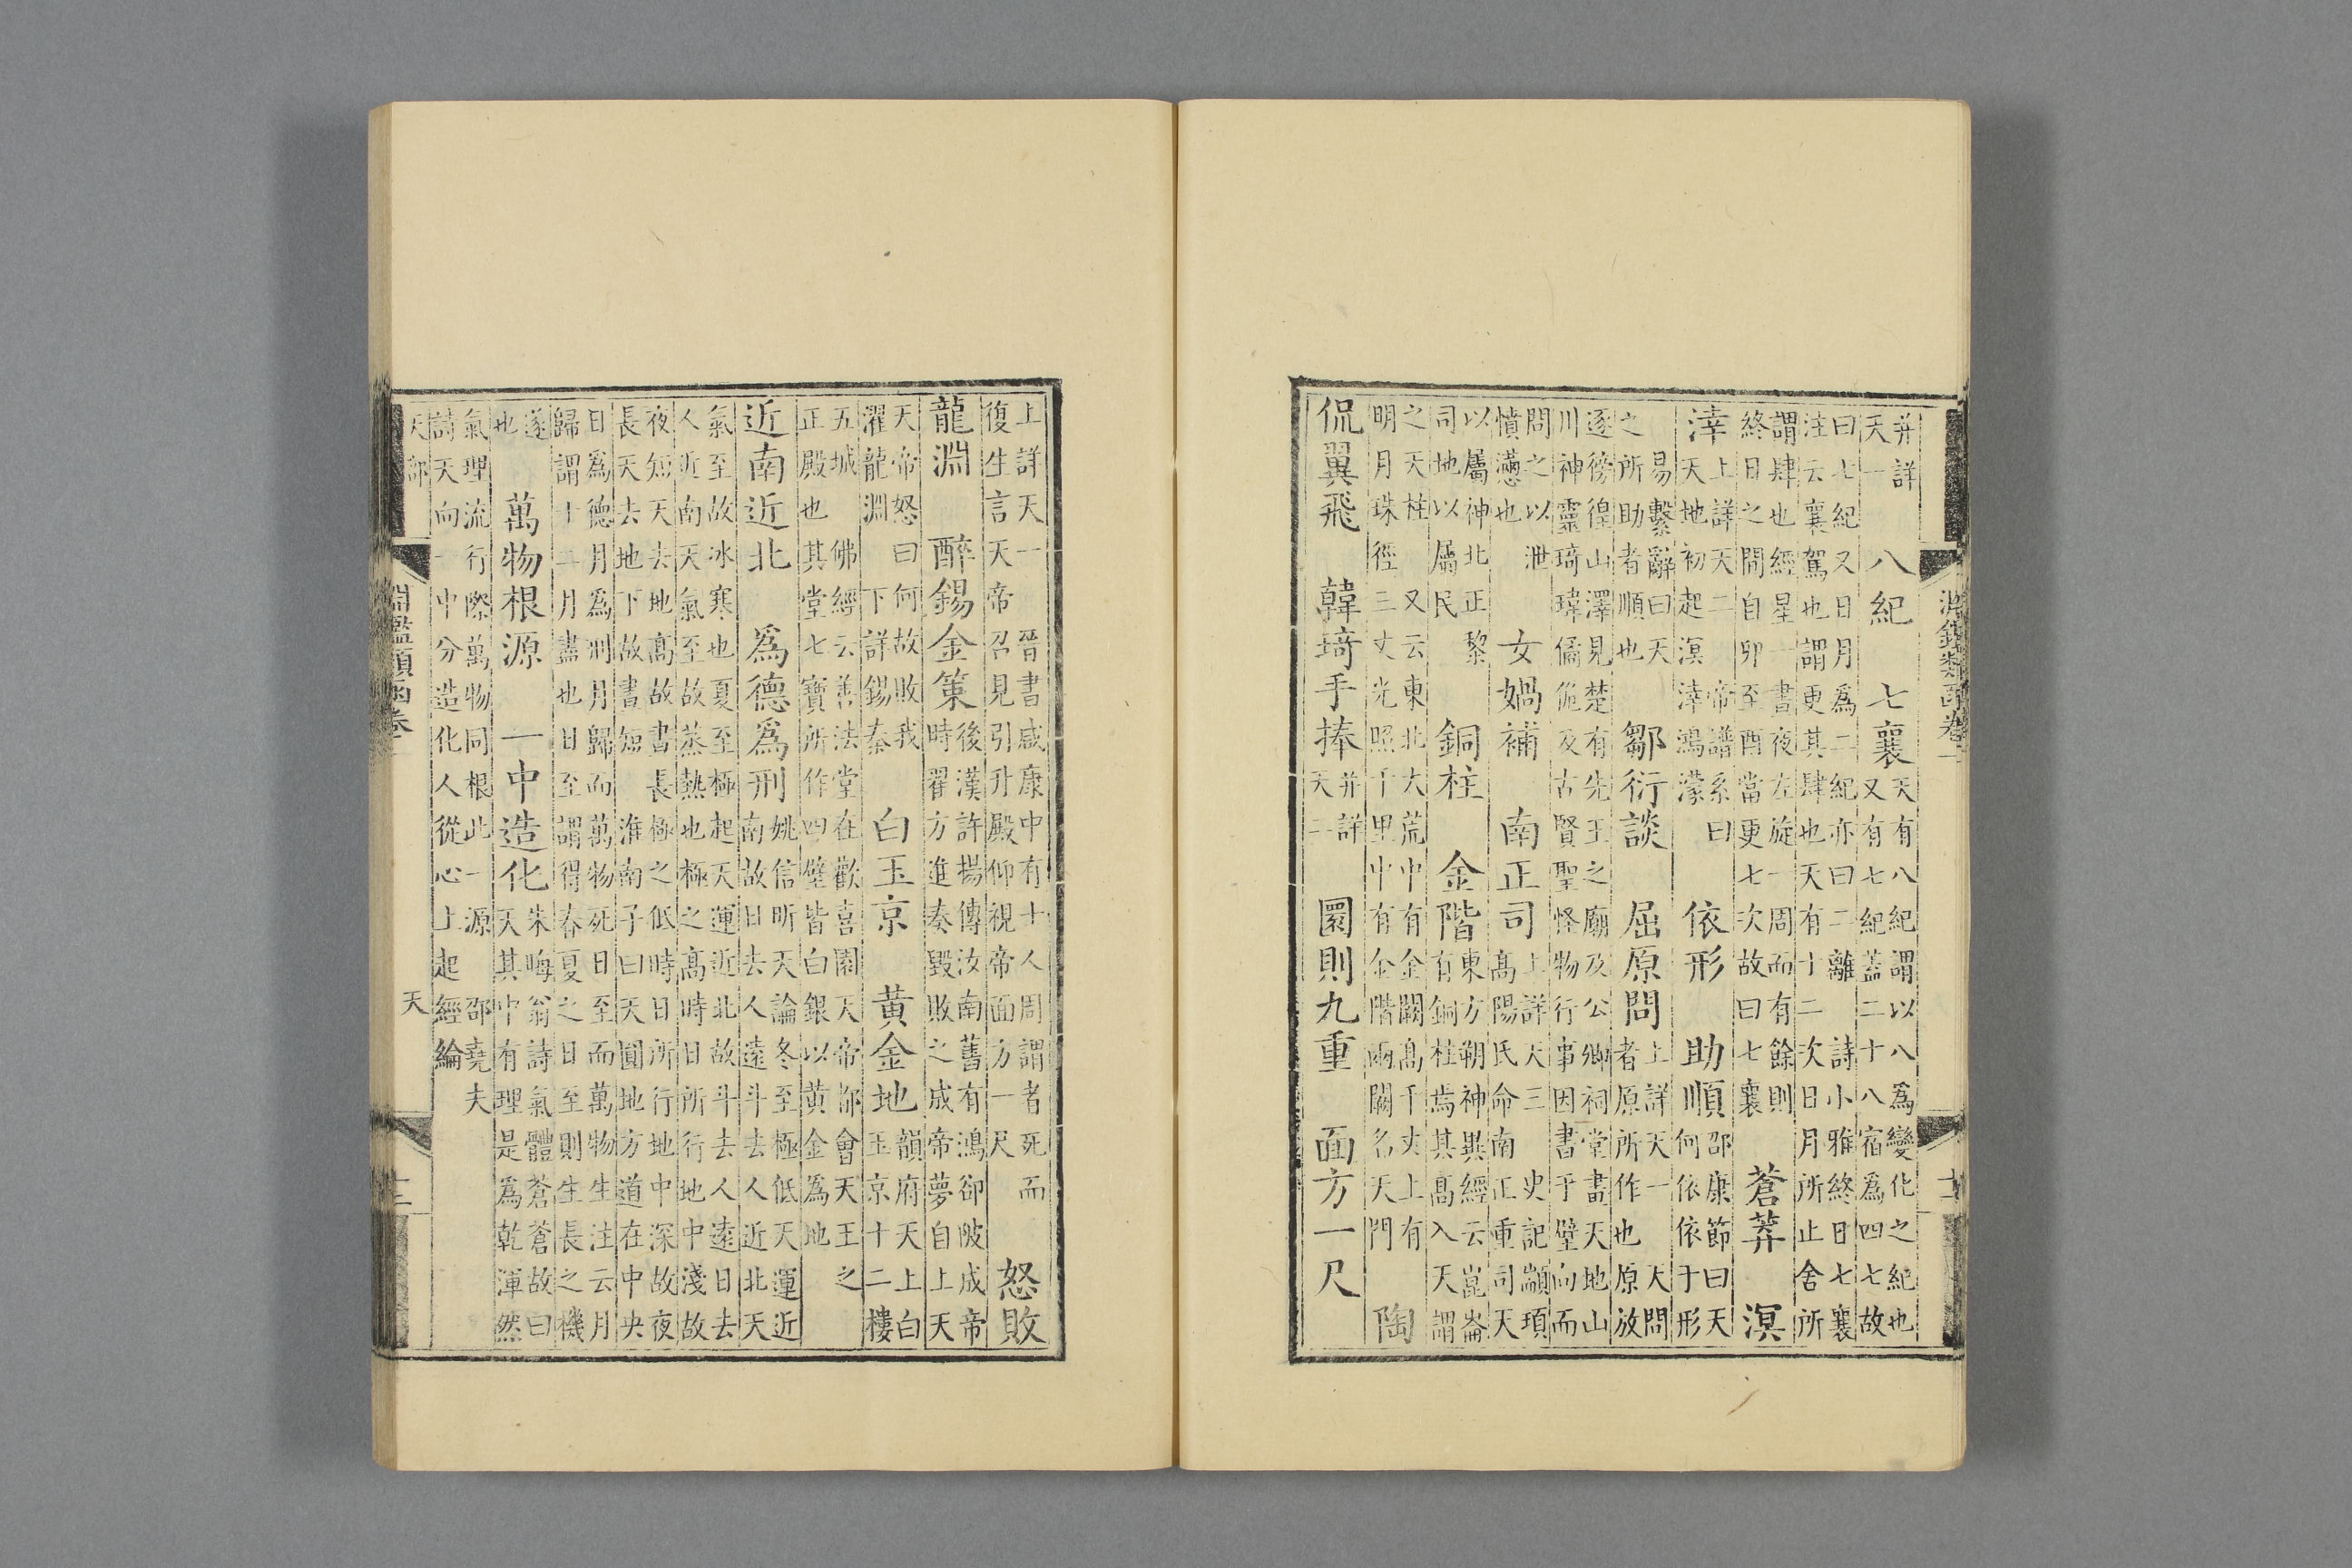 淵鑑類函卷一
并詳天一 八紀 七襄 天有八紀謂以八為變化之紀也又有七紀蓋二十八宿為四七故
曰七紀又日月為二紀亦曰二離 詩小雅終日七襄
注云襄駕也謂更其肆也天有十二次日月所止舍所
謂肆也經星一晝夜左旋一周而有餘則終日之間自卯至酉當更七次故曰七襄 蒼莽 溟
涬 上詳天二 帝譜系曰天地初起溟涬鴻濛 依形 助順 邵康節曰天何依依于形
易繫辭曰天之所助者順也 鄒衍談 屈原問 上詳天一 天問者原所作也 原放
逐徬徨山澤見楚有先王之廟及公卿祠堂畫天地山
川神靈琦瑋僪佹及古賢聖怪物行事因書于壁向而
問之以泄憤懣也 女媧補 南正司 上詳天三 史記顓頊高陽氏命南正重司天
以屬神北正黎司地以屬民 銅柱 金階 東方朔神異經云崑崙有銅柱焉其高入天謂
之天柱 又云東北大荒中有金闕高千丈上有
明月珠徑三丈光照千里中有金階兩闕名天門 陶
侃翼飛 韓琦手捧 并詳天二 圜則九重 面方一尺
上詳天一 晉書咸康中有士人周謂者死而
復生言天帝召見引升殿仰視帝面方一尺 怒敗
龍淵 醉錫金策 後漢許揚傳汝南舊有鴻郤陂成帝時翟方進奏毀敗之成帝夢自上天
天帝怒曰何故敗我濯龍淵 下詳錫秦 白玉京 黃金地 韻府天上白玉京十二樓
五城 佛經云善法堂在歡喜園天帝都會天王之
正殿也其堂七寶所作四壁皆白銀以黃金為地
近南近北 為德為刑 姚信昕天論冬至極低天運近南故日去人遠斗去人近北天
氣至故冰寒也夏至極起天運近北故斗去人遠日去
人近南天氣至故蒸熱也極之高時日所行地中淺故
夜短天去地高故晝長極之低時日所行地中深故夜
長天去地下故晝短 淮南子曰天圓地方道在中央
日為德月為刑月歸而萬物死日至而萬物生注云月
歸謂十二月盡也日至謂得春夏之日至則生長之機
遂也 萬物根源 一中造化 朱晦翁詩氣體蒼蒼故曰天其中有理是為乾渾然
氣理流行際萬物同根此一源 邵堯夫
詩天向一中分造化人從心上起經綸
天部 天
淵鑑類函卷一
十二